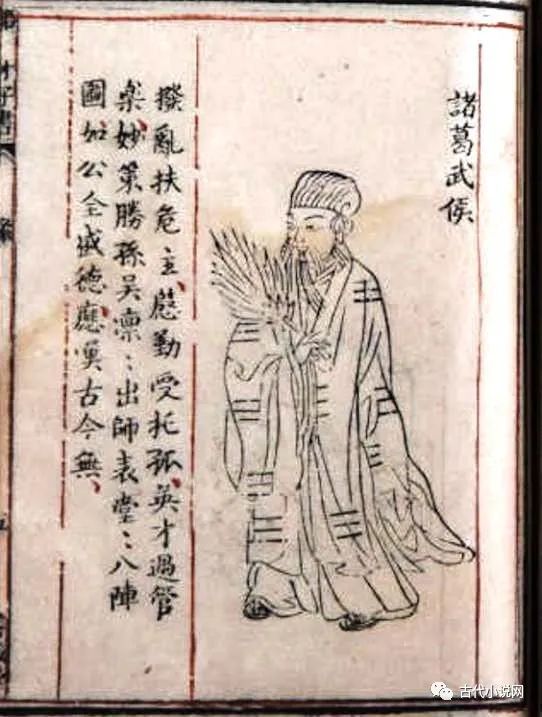 諸葛武侯
撥亂扶危主、慇勤受托孤、英才過管
楽、妙策勝孫吳、凛〻出師表、堂〻八陣
圖、如公全盛德、應嘆古今無、
才子書
古代小说网